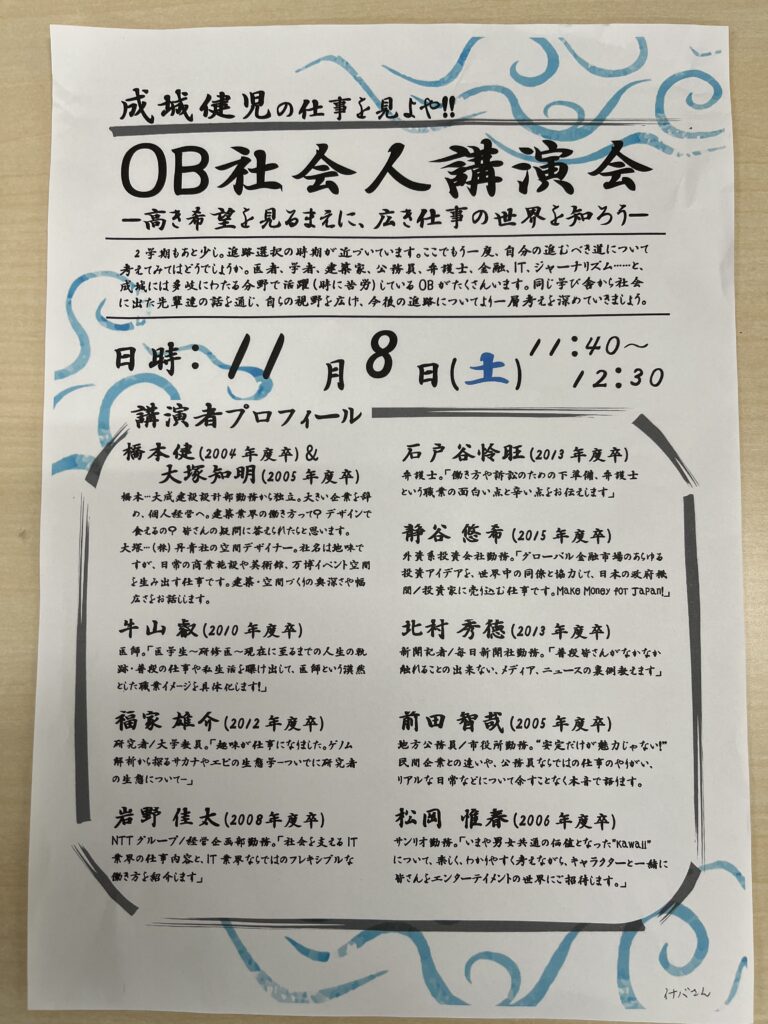 成城健児の仕事を見よや!!
OB社会人講演会
ー高き希望を見るまえに、広き仕事の世界を知ろうー
2学期もあと少し。進路選択の時期が近づいています。ここでもう一度、自分の進むべき道について
考えてみてはどうでしょうか。医者、学者、建築家、公務員、弁護士、金融、IT、ジャーナリズム……と、
成城には多岐にわたる分野で活躍(時に苦労)しているOBがたくさんいます。同じ学び舎から社会
に出た先輩達の話を通じ、自らの視野を広げ、今後の進路についてより一層考えを深めていきましょう。
日時：11月8日(土) 11:40～
12:30
講演者プロフィール
橋本健(2004年度卒)&
大塚知明(2005年度卒)
橋本…大成建設設計部勤務から独立。大きい企業を辞
め、個人経営へ。建築業界の働き方って？デザインで
食えるの？皆さんの疑問に答えられたらと思います。
大塚…(株)丹青社の空間デザイナー。社名は地味で
すが、日常の商業施設や美術館、万博イベント空間
を生み出す仕事です。建築・空間づくりの奥深さや幅
広さをお話しします。
牛山 叡(2010年度卒)
医師。「医学生～研修医～現在に至るまでの人生の軌
跡・普段の仕事や私生活を曝け出して、医師という漠然
とした職業イメージを具体化します!」
福家 雄介(2012年度卒)
研究者/大学教員。「趣味が仕事になりました。ゲノム
解析から探るサカナやエビの生態学ーついでに研究者
の生態についてー」
岩野 佳太(2008年度卒)
NTTグループ/経営企画部勤務。「社会を支えるIT
業界の仕事内容と、IT業界ならではのフレキシブルな
働き方を紹介します」
石戸谷怜旺(2013年度卒)
弁護士。「働き方や訴訟のための下準備、弁護士
という職業の面白い点と辛い点をお伝えします」
静谷 悠希(2015年度卒)
外資系投資会社勤務。「グローバル金融市場のあらゆる
投資アイデアを、世界中の同僚と協力して、日本の政府機
関/投資家に売り込む仕事です。Make Money for Japan!」
北村 秀徳(2013年度卒)
新聞記者/毎日新聞社勤務。「普段皆さんがなかなか
触れることの出来ない、メディア、ニュースの裏側教えます」
前田 智哉(2005年度卒)
地方公務員/市役所勤務。“安定だけが魅力じゃない!”
民間企業との違いや、公務員ならではの仕事のやりがい、
リアルな日常などについて余すことなく本音で語ります。
松岡 惟春(2006年度卒)
サンリオ勤務。「いまや男女共通の価値となった“Kawaii”
について、楽しく、わかりやすく考えながら、キャラクターと一緒に
皆さんをエンターテイメントの世界にご招待します。」
けバさん